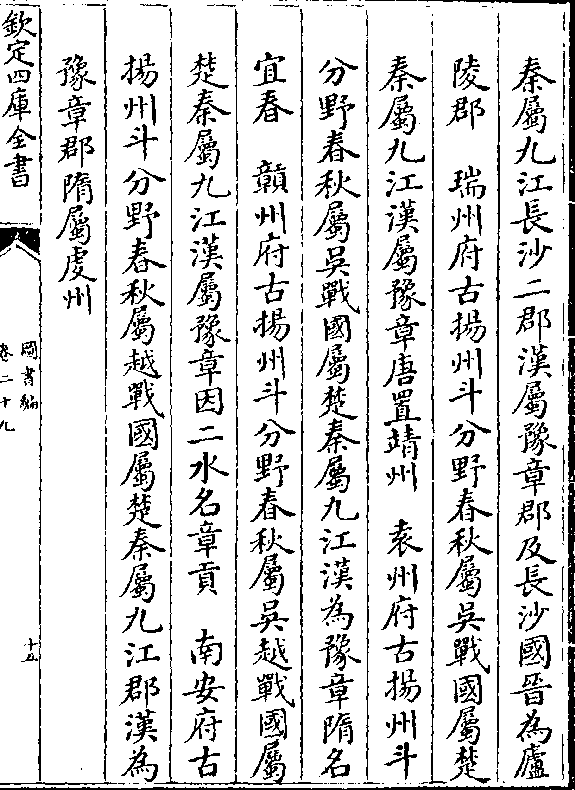 秦屬九江長沙二郡漢屬豫章郡及長沙國晉為廬
陵郡　瑞州府古揚州斗分野春秋屬吳戰國屬楚
秦屬九江漢屬豫章唐置靖州　袁州府古揚州斗
分野春秋屬吳戰國屬楚秦屬九江漢為豫章隋名
宜春　贛州府古揚州斗分野春秋屬吳越戰國屬
楚秦屬九江漢屬豫章因二水名章貢　南安府古
揚州斗分野春秋屬越戰國屬楚秦屬九江郡漢為
豫章郡隋屬虔州
欽定四庫全書
圖書編
卷二十九
十五